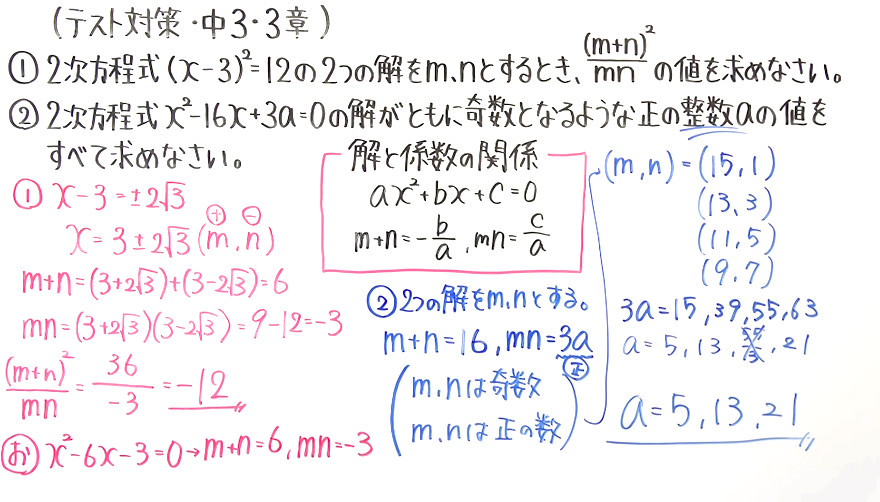 (テスト対策・中3・3章)
① 2次方程式(x-3)²=12の2つの解をm、nとするとき、(m+n)²/mn の値を求めなさい。
② 2次方程式x²-16x+3a=0の解がともに奇数となるような正の整数aの値を
すべて求めなさい。
① x-3=±2√3
x=3±2√3 (m, n)
⊕ ⊖
m+n=(3+2√3)+(3-2√3)=6
mn=(3+2√3)(3-2√3)=9-12=-3
(m+n)²/mn = 36/-3 = -12
お x²-6x-3=0→m+n=6, mn=-3
解と係数の関係
ax²+bx+c=0
m+n=-b/a, mn=c/a
② 2つの解をm,nとする。
m+n=16, mn=3a
正
(m,nは奇数
m,nは正の数)
(m,n)=(15,1)
(13,3)
(11,5)
(9,7)
3a=15,39,55,63
a=5,13, ,21
a=5,13,21